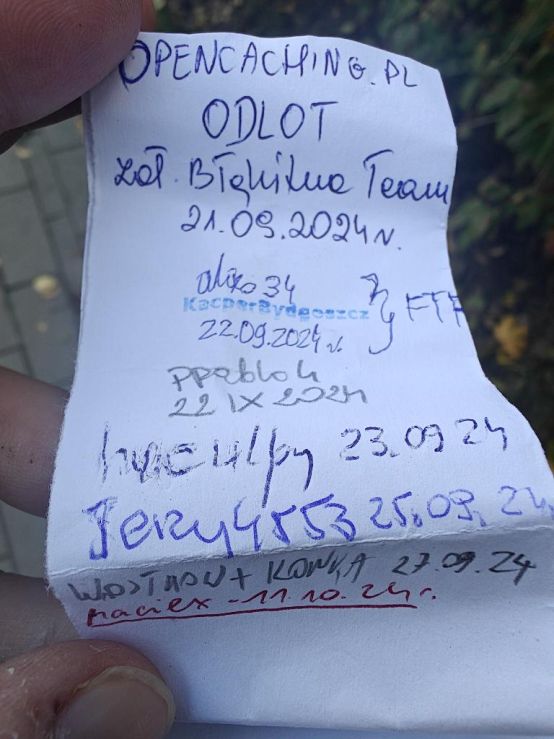 OPENCACHING.PL
ODLOT
zał. Błękitna Team
21.09.2024r.
alko34
KacperBydgoszcz } FTF
22.09.2024r.
ppablo4
22 IX 2024
23.09 24
Jerzy4553 25.09.24
+ KONKA 27.09.24
maciex - 11.10.24r.